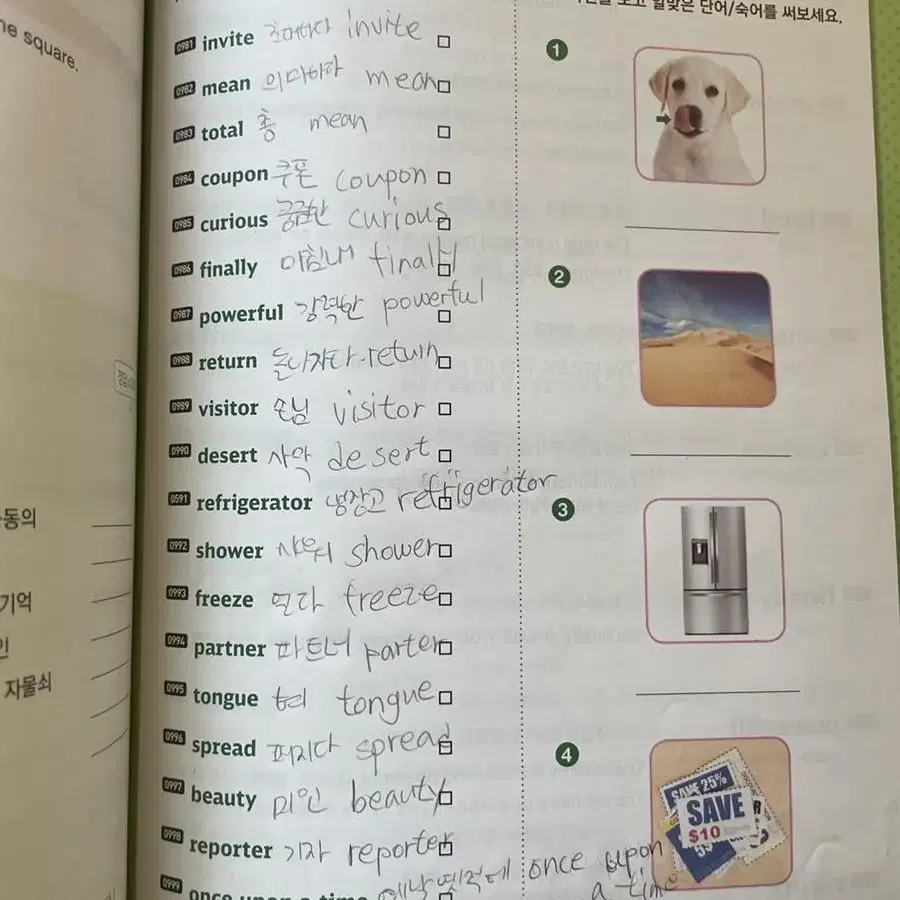 he square.
알맞은 단어/숙어를 써보세요.
0981 invite 초대하다 invite
0982 mean 의미하다 mean
0983 total 총 mean
0984 coupon 쿠폰 coupon
0985 curious 궁금한 curious
0986 finally 마침내 finally
0987 powerful 강력한 powerful
0988 return 돌아가다 return
0989 visitor 손님 visitor
0990 desert 사막 desert
0591 refrigerator 냉장고 refrigerator
0992 shower 샤워 shower
0993 freeze 얼다 freeze
0994 partner 파트너 parter
0995 tongue 혀 tongue
0996 spread 퍼지다 spread
0997 beauty 미인 beauty
0998 reporter 기자 reporter
0999 once upon a time 옛날 옛적에 once upon
a time
동의
기억
인
자물쇠
1
2
3
4
SAVE 25%
SAVE
$10